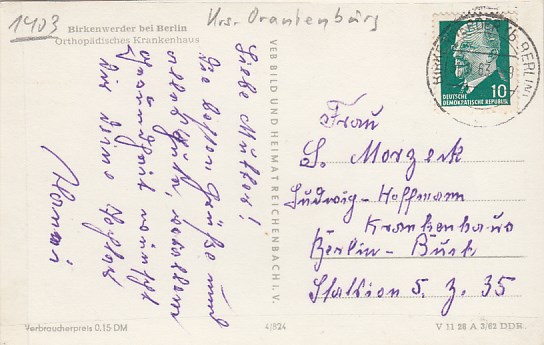 1403
Krs. Oranienburg
Birkenwerder bei Berlin
Orthopädisches Krankenhaus
Liebe Mutter!
Die besten Grüße und
alles Gute, vor allem
Gesundheit wünscht
dir deine
VEB BILD UND HEIMAT REICHENBACH I. V.
DEUTSCHE
DEMOKRATISCHE REPUBLIK
10
BERLIN
Frau
S. Morzeck
Ludwig-Hoffmann
Krankenhaus
Berlin-Buch
Station 5. Z. 35
Verbraucherpreis 0.15 DM
4/824
V 11 28 A 3/62 DDR